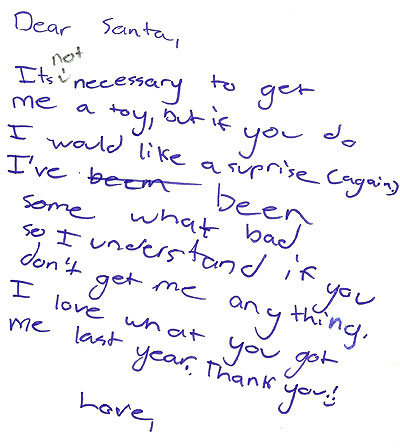 Dear Santa,
Its not necessary to get
me a toy, but if you do
I would like a suprise (again)
I've been been
some what bad
so I understand if you
don't get me any thing.
I love what you got
me last year. Thank you!!
Love,